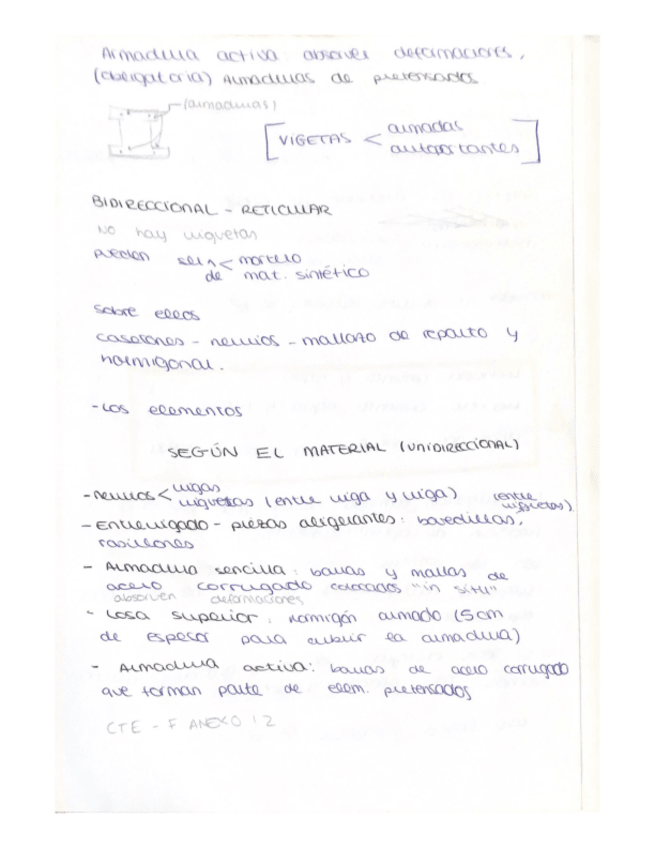 Armadura activa: absorver deformaciones,
(obligatoria) Armaduras de pretensados
(armaduras)
[VIGETAS < armadas
autoportantes]
BIDIRECCIONAL - RETICULAR
NO hay viguetas
pueden ser < mortero
de mat. sintético
sobre ellos
casetones - nervios - mallazo de reparto y
hormigonar.
- Los elementos
SEGÚN EL MATERIAL (UNIDIRECCIONAL)
- nervios < vigas
viguetas (entre viga y viga) (entre viguetas)
- Entrevigado - piezas aligerantes: bovedillas,
rasillones
- Armadura sencilla: barras y mallas de
acero corrugado colocados "in situ"
absorven deformaciones
- Losa superior: hormigón armado (5cm
de espesor para cubrir la armadura)
- Armadura activa: barras de acero corrugado
que forman parte de elem. pretensados
CTE - F ANEXO 12